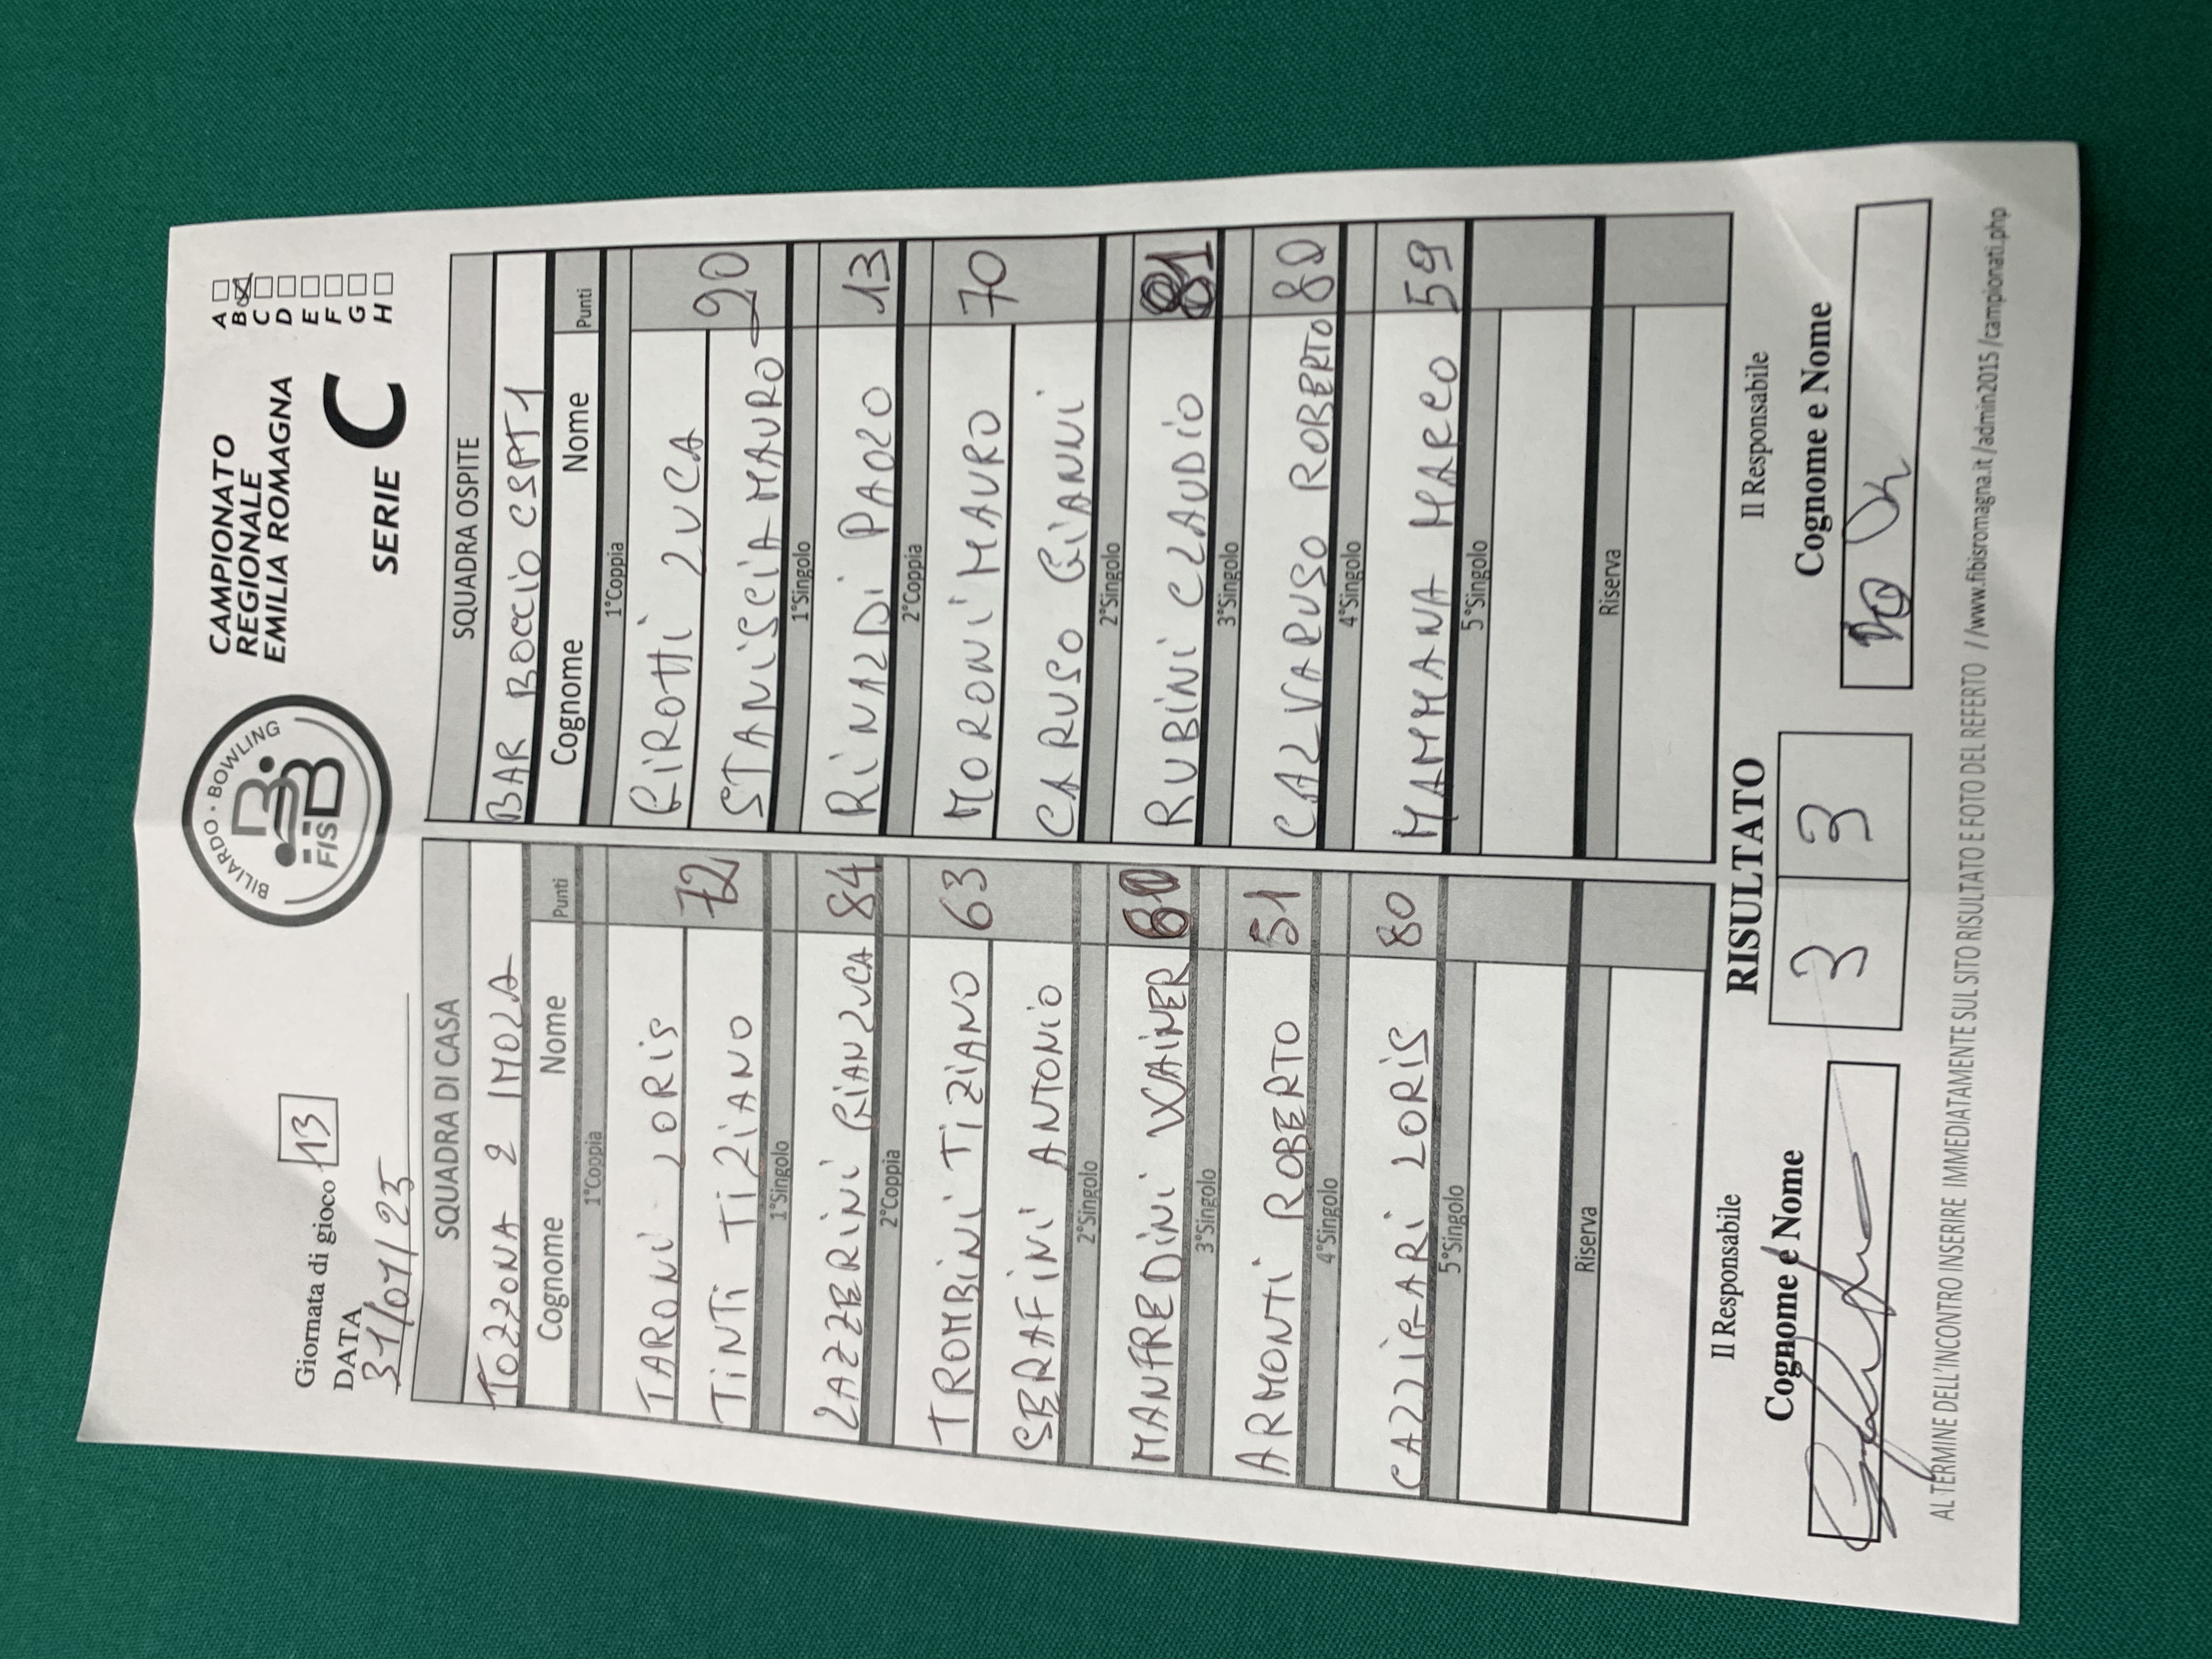 BILIARDO • BOWLING
FISBB
CAMPIONATO
REGIONALE
EMILIA ROMAGNA
SERIE C
A
B
C
D
E
F
G
H
Giornata di gioco 13
DATA
31/01/25
SQUADRA DI CASA
TOZZONA 2 IMOLA
Cognome Nome Punti
1°Coppia
TARONI LORIS
TINTI TIZIANO 72
1°Singolo
LAZZERINI GIANLUCA 84
2°Coppia
TROMBINI TIZIANO 63
SERAFINI ANTONIO
2°Singolo
MANFREDINI WAINER
3°Singolo
ARMONTI ROBERTO 51
4°Singolo
CAZZIGARI LORIS 80
5°Singolo
Riserva
SQUADRA OSPITE
BAR BOCCIO CSPT1
Cognome Nome Punti
1°Coppia
GIROTTI LUCA
STANISCIA MAURO 90
1°Singolo
RINALDI PAOLO 13
2°Coppia
MORONI MAURO 70
CARUSO GIANNI
2°Singolo
RUBINI CLAUDIO 81
3°Singolo
CALVARUSO ROBERTO 80
4°Singolo
MAMMANA MARCO 59
5°Singolo
Riserva
RISULTATO
3 3
Il Responsabile
Cognome e Nome
Il Responsabile
Cognome e Nome
AL TERMINE DELL'INCONTRO INSERIRE IMMEDIATAMENTE SUL SITO RISULTATO E FOTO DEL REFERTO //www.fibisromagna.it/admin2015/campionati.php